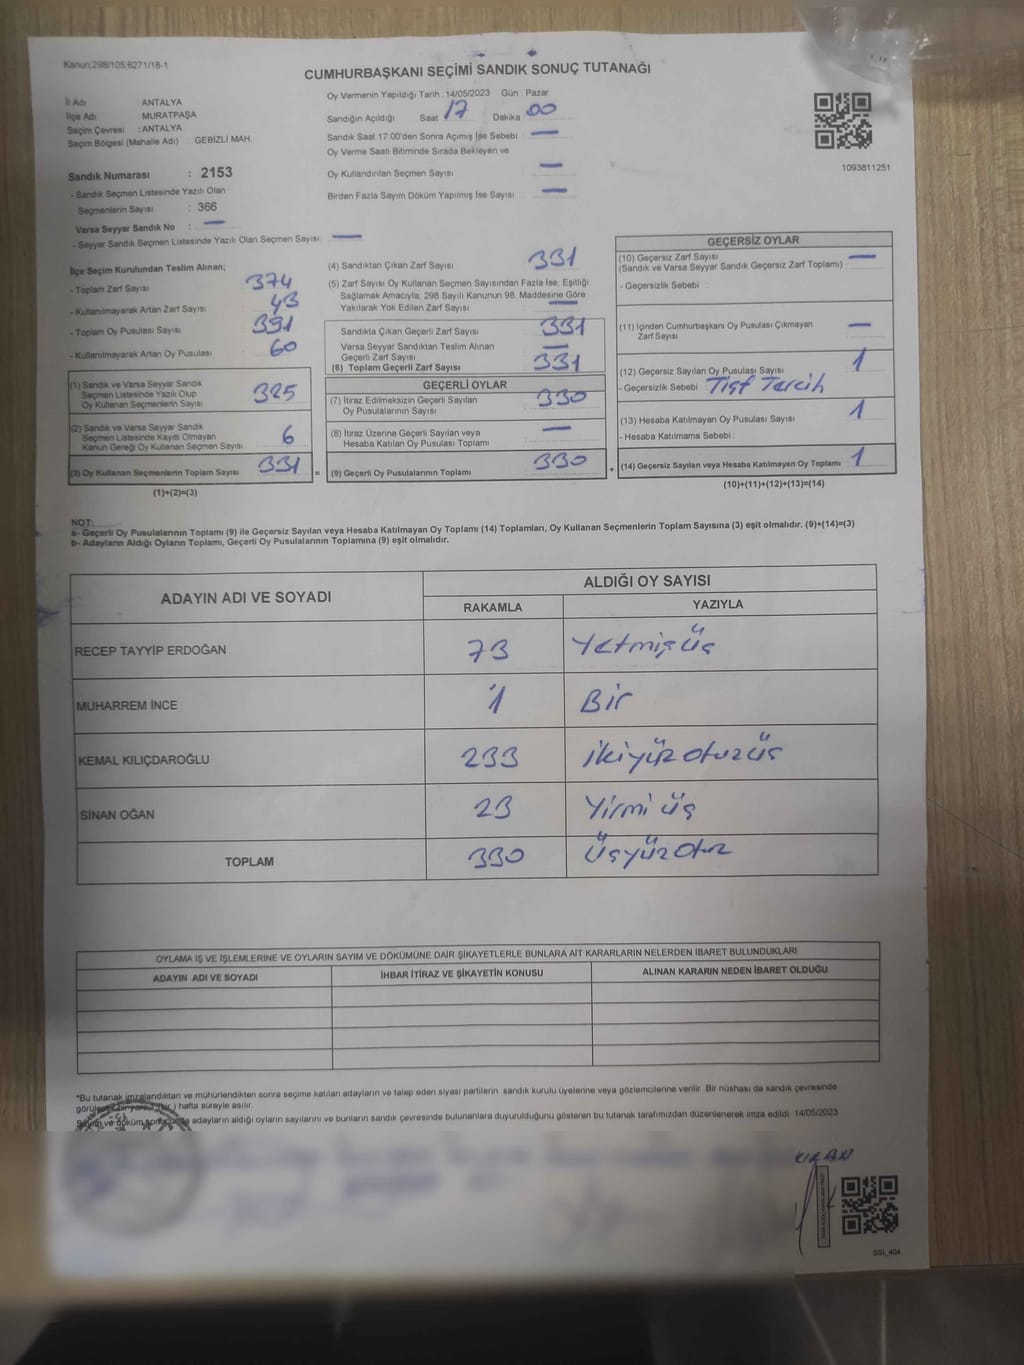 Kanun:298/105,6271/18-1
CUMHURBAŞKANI SEÇİMİ SANDIK SONUÇ TUTANAĞI
İl Adı ANTALYA
İlçe Adı MURATPAŞA
Seçim Çevresi : ANTALYA
Seçim Bölgesi (Mahalle Adı) GEBİZLİ MAH.
Sandık Numarası : 2153
- Sandık Seçmen Listesinde Yazılı Olan
Seçmenlerin Sayısı : 366
Varsa Seyyar Sandık No : —
- Seyyar Sandık Seçmen Listesinde Yazılı Olan Seçmen Sayısı: —
Oy Vermenin Yapıldığı Tarih : 14/05/2023 Gün : Pazar
Sandığın Açıldığı Saat 17 Dakika 00
Sandık Saat 17:00'den Sonra Açımış İse Sebebi : —
Oy Verme Saati Bitiminde Sırada Bekleyen ve
Oy Kullandırılan Seçmen Sayısı : —
Birden Fazla Sayım Döküm Yapılmış İse Sayısı : —
1093811251
İlçe Seçim Kurulundan Teslim Alınan;
- Toplam Zarf Sayısı : 374
- Kullanılmayarak Artan Zarf Sayısı : 43
- Toplam Oy Pusulası Sayısı : 391
- Kullanılmayarak Artan Oy Pusulası : 60
(1) Sandık ve Varsa Seyyar Sandık
Seçmen Listesinde Yazılı Olup
Oy Kullanan Seçmenlerin Sayısı 325
(2) Sandık ve Varsa Seyyar Sandık
Seçmen Listesinde Kayıtlı Olmayan
Kanun Gereği Oy Kullanan Seçmen Sayısı 6
(3) Oy Kullanan Seçmenlerin Toplam Sayısı 331 =
(1)+(2)=(3)
(4) Sandıktan Çıkan Zarf Sayısı : 331
(5) Zarf Sayısı Oy Kullanan Seçmen Sayısından Fazla İse, Eşitliği
Sağlamak Amacıyla; 298 Sayılı Kanunun 98. Maddesine Göre
Yakılarak Yok Edilen Zarf Sayısı : —
Sandıkta Çıkan Geçerli Zarf Sayısı : 331
Varsa Seyyar Sandıktan Teslim Alınan
Geçerli Zarf Sayısı : —
(6) Toplam Geçerli Zarf Sayısı : 331
GEÇERLİ OYLAR
(7) İtiraz Edilmeksizin Geçerli Sayılan
Oy Pusulalarının Sayısı : 330
(8) İtiraz Üzerine Geçerli Sayılan veya
Hesaba Katılan Oy Pusulası Toplamı : —
(9) Geçerli Oy Pusulalarının Toplamı : 330 +
GEÇERSİZ OYLAR
(10) Geçersiz Zarf Sayısı
(Sandık ve Varsa Seyyar Sandık Geçersiz Zarf Toplamı) : —
- Geçersizlik Sebebi :
(11) İçinden Cumhurbaşkanı Oy Pusulası Çıkmayan
Zarf Sayısı : —
(12) Geçersiz Sayılan Oy Pusulası Sayısı : 1
- Geçersizlik Sebebi Tercih
(13) Hesaba Katılmayan Oy Pusulası Sayısı : 1
- Hesaba Katılmama Sebebi :
(14) Geçersiz Sayılan veya Hesaba Katılmayan Oy Toplamı : 1
(10)+(11)+(12)+(13)=(14)
NOT:
a- Geçerli Oy Pusulalarının Toplamı (9) ile Geçersiz Sayılan veya Hesaba Katılmayan Oy Toplamı (14) Toplamları, Oy Kullanan Seçmenlerin Toplam Sayısına (3) eşit olmalıdır. (9)+(14)=(3)
b- Adayların Aldığı Oyların Toplamı, Geçerli Oy Pusulalarının Toplamına (9) eşit olmalıdır.
ADAYIN ADI VE SOYADI ALDIĞI OY SAYISI
RAKAMLA YAZIYLA
RECEP TAYYİP ERDOĞAN 73 Yetmişüç
MUHARREM İNCE 1 Bir
KEMAL KILIÇDAROĞLU 233 ikiyüz otuzüç
SİNAN OĞAN 23 Yirmi üç
TOPLAM 330 Üçyüz Otuz
OYLAMA İŞ VE İŞLEMLERİNE VE OYLARIN SAYIM VE DÖKÜMÜNE DAİR ŞİKAYETLERLE BUNLARA AİT KARARLARIN NELERDEN İBARET BULUNDUKLARI
ADAYIN ADI VE SOYADI İHBAR İTİRAZ VE ŞİKAYETİN KONUSU ALINAN KARARIN NEDEN İBARET OLDUĞU
*Bu tutanak imzalandıktan ve mühürlendikten sonra seçime katılan adayların ve talep eden siyasi partilerin sandık kurulu üyelerine veya gözlemcilerine verilir. Bir nüshası da sandık çevresinde
hafta süreyle asılır.
Sayım ve döküm adayların aldığı oyların sayılarını ve bunların sandık çevresinde bulunanlara duyurulduğunu gösteren bu tutanak tarafımızdan düzenlenerek imza edildi. 14/05/2023
KIRAN
SSI_404